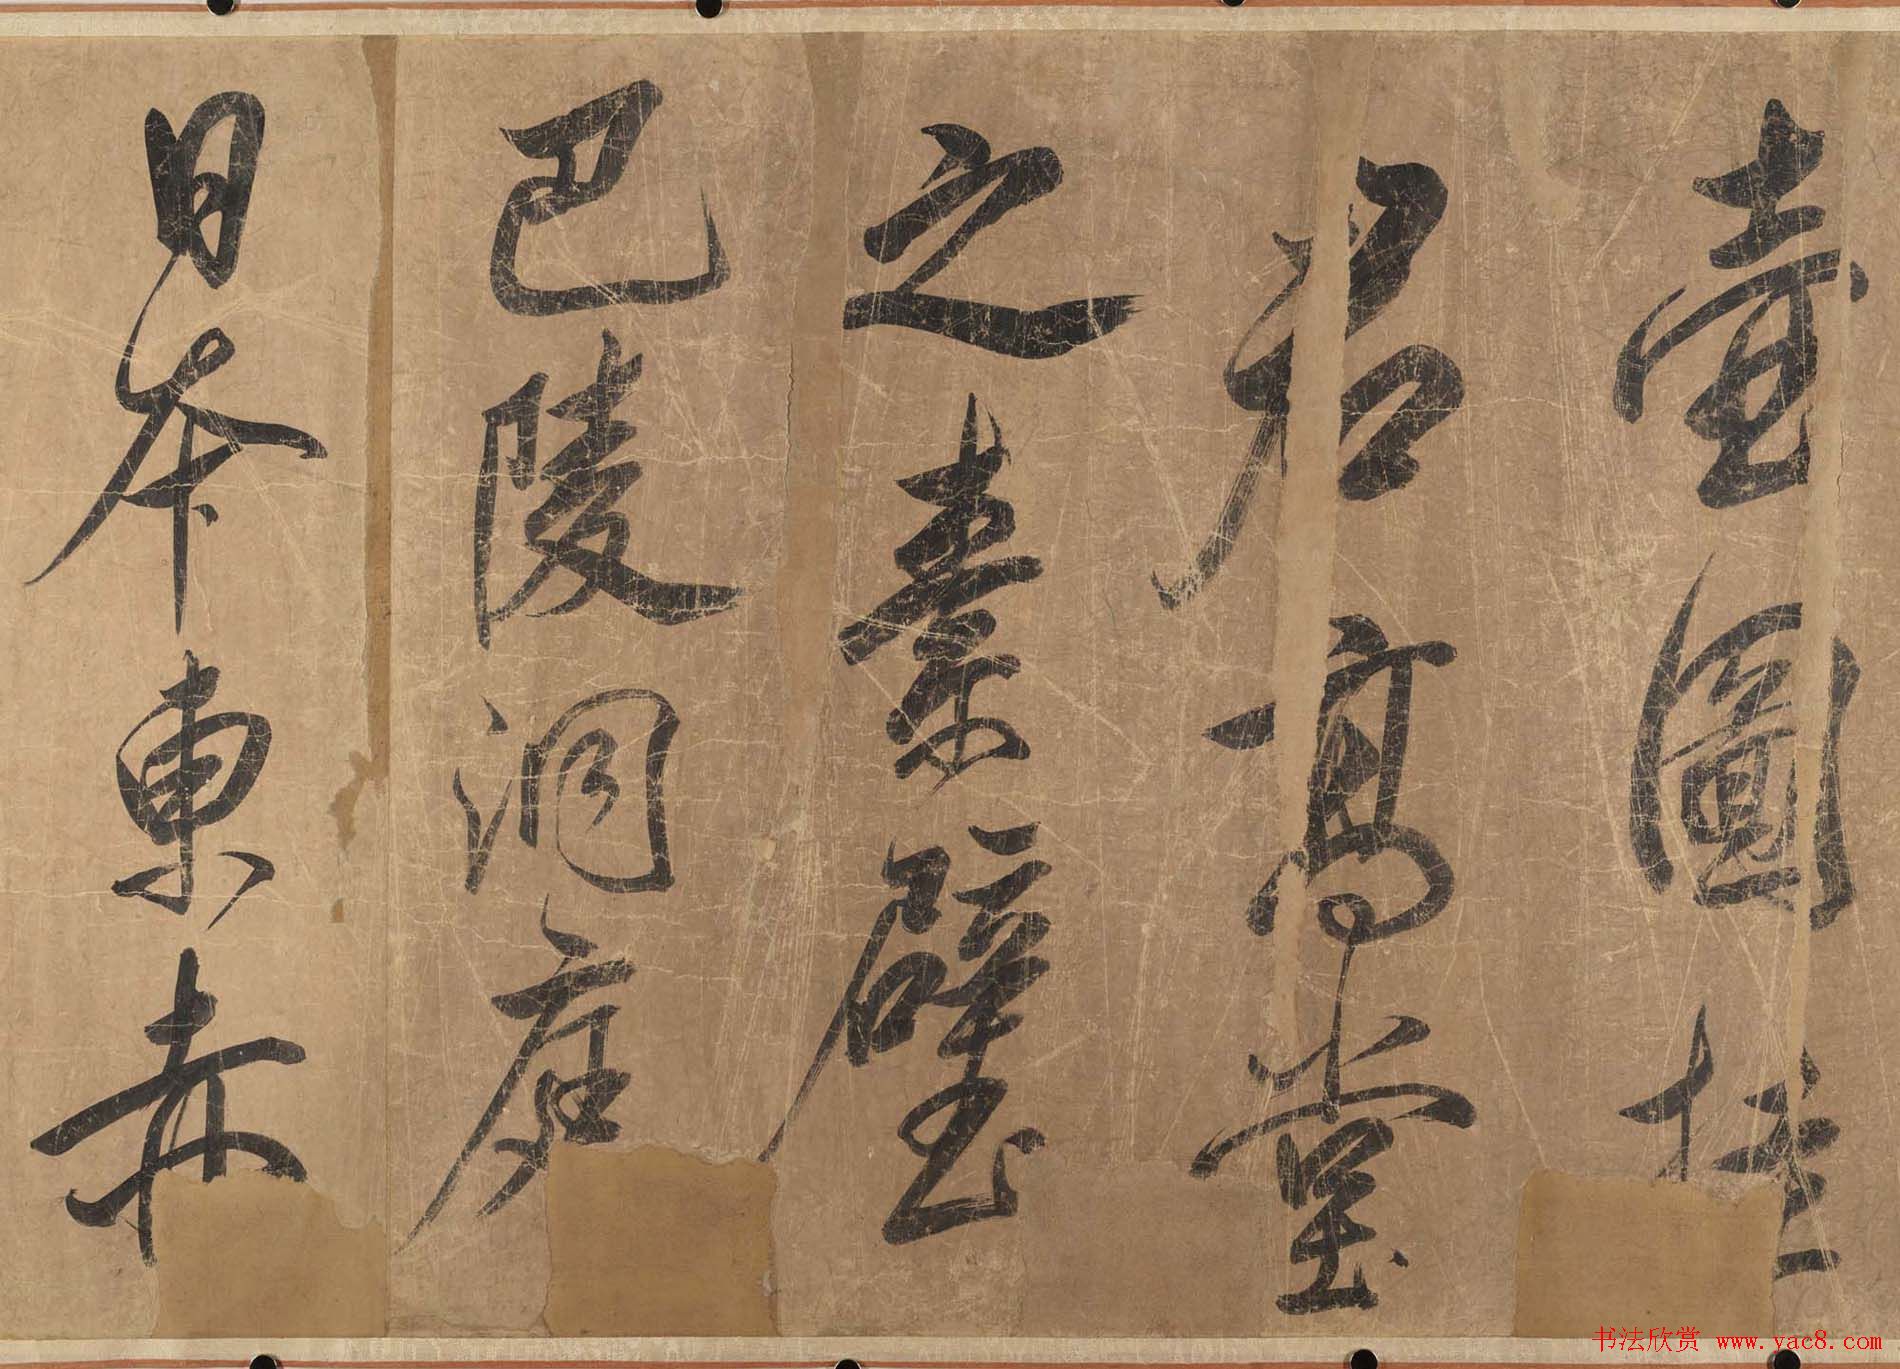 壺圖挂
君高堂
之素壁
巴陵洞庭
日本東赤
书法欣赏 www.yac8.com